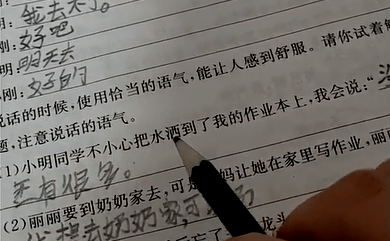 我去不了。
: 好吧
明: 明天去
小刚: 好的
说话的时候,使用恰当的语气,能让人感到舒服。请你试着
题,注意说话的语气。
(1)小明同学不小心把水洒到了我的作业本上,我会说:“没
还有很多。
(2)丽丽要到奶奶家去,可是 妈让她在家里写作业,丽
想去奶奶家,可
忘了 龙头